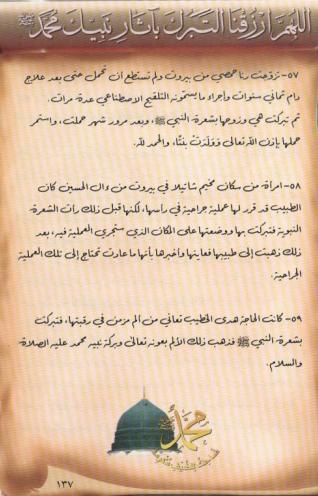 اللهم ارزقنا التبرك بآثار نبيك محمد ﷺ
٥٧- تزوجت رنا حمصي من بيروت ولم تستطع أن تحمل حتى بعد علاج
دام ثماني سنوات وأجراء ما يسمونه التلقيح الاصطناعي عدة مرات.
ثم تبركت هي وزوجها بشعرة النبي ﷺ، وبعد مرور شهر حملت، واستمر
حملها بإذن الله تعالى وولدت بنتًا، والحمد لله.
٥٨- امرأة من سكان مخيم شاتيلا في بيروت من ءال الحسين كان
الطبيب قد قرر لها عملية جراحية في رأسها، لكنها قبل ذلك رأت الشعرة
النبوية فتبركت بها ووضعتها على المكان الذي ستجرى العملية فيه، بعد
ذلك ذهبت إلى طبيبها فعاينها وأخبرها بأنها ما عادت تحتاج إلى تلك العملية
الجراحية.
٥٩- كانت الحاجة هدى الخطيب تعاني من ألم مزمن في رقبتها، فتبركت
بشعرة النبي ﷺ فذهب ذلك الألم بعونه تعالى وبركة نبيه محمد عليه الصلاة
والسلام.
محمد
١٣٧